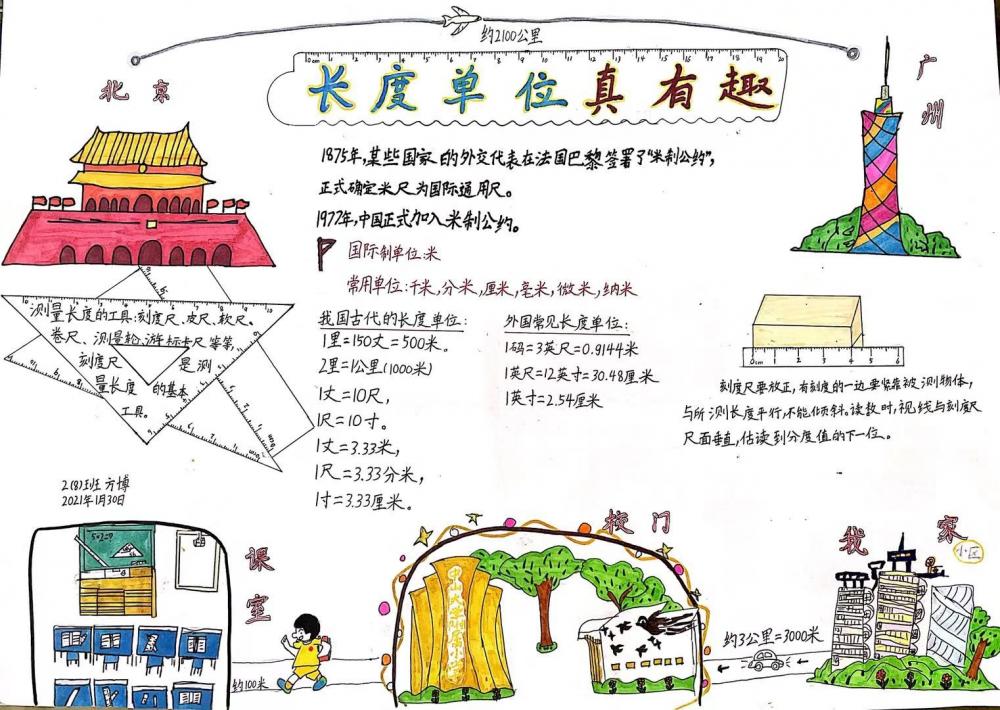 约2100公里
北京
广州
长度单位真有趣
1875年,某些国家的外交代表在法国巴黎签署了“米制公约”,
正式确定米尺为国际通用尺。
1977年,中国正式加入米制公约。
国际制单位:米
常用单位:千米,分米,厘米,毫米,微米,纳米
测量长度的工具:刻度尺、皮尺、软尺。
卷尺、测量轮、游标卡尺等等,
刻度尺 是测
量长度 的基本
工具。
我国古代的长度单位:
1里=150丈=500米。
2里=1公里(1000米)
1丈=10尺,
1尺=10寸。
1丈=3.33米,
1尺=3.33分米,
1寸=3.33厘米。
外国常见长度单位:
1码=3英尺=0.9144米
1英尺=12英寸=30.48厘米
1英寸=2.54厘米
0cm 1 2 3 4 5 6
刻度尺要放正,有刻度的一边要紧靠被测物体,
与所测长度平行,不能倾斜。读数时,视线与刻度尺
尺面垂直,估读到分度值的下一位。
2(8)班 方博
2021年1月30日
课室
约100米
校门
中山大学附属小学
约3公里=3000米
我家
小区